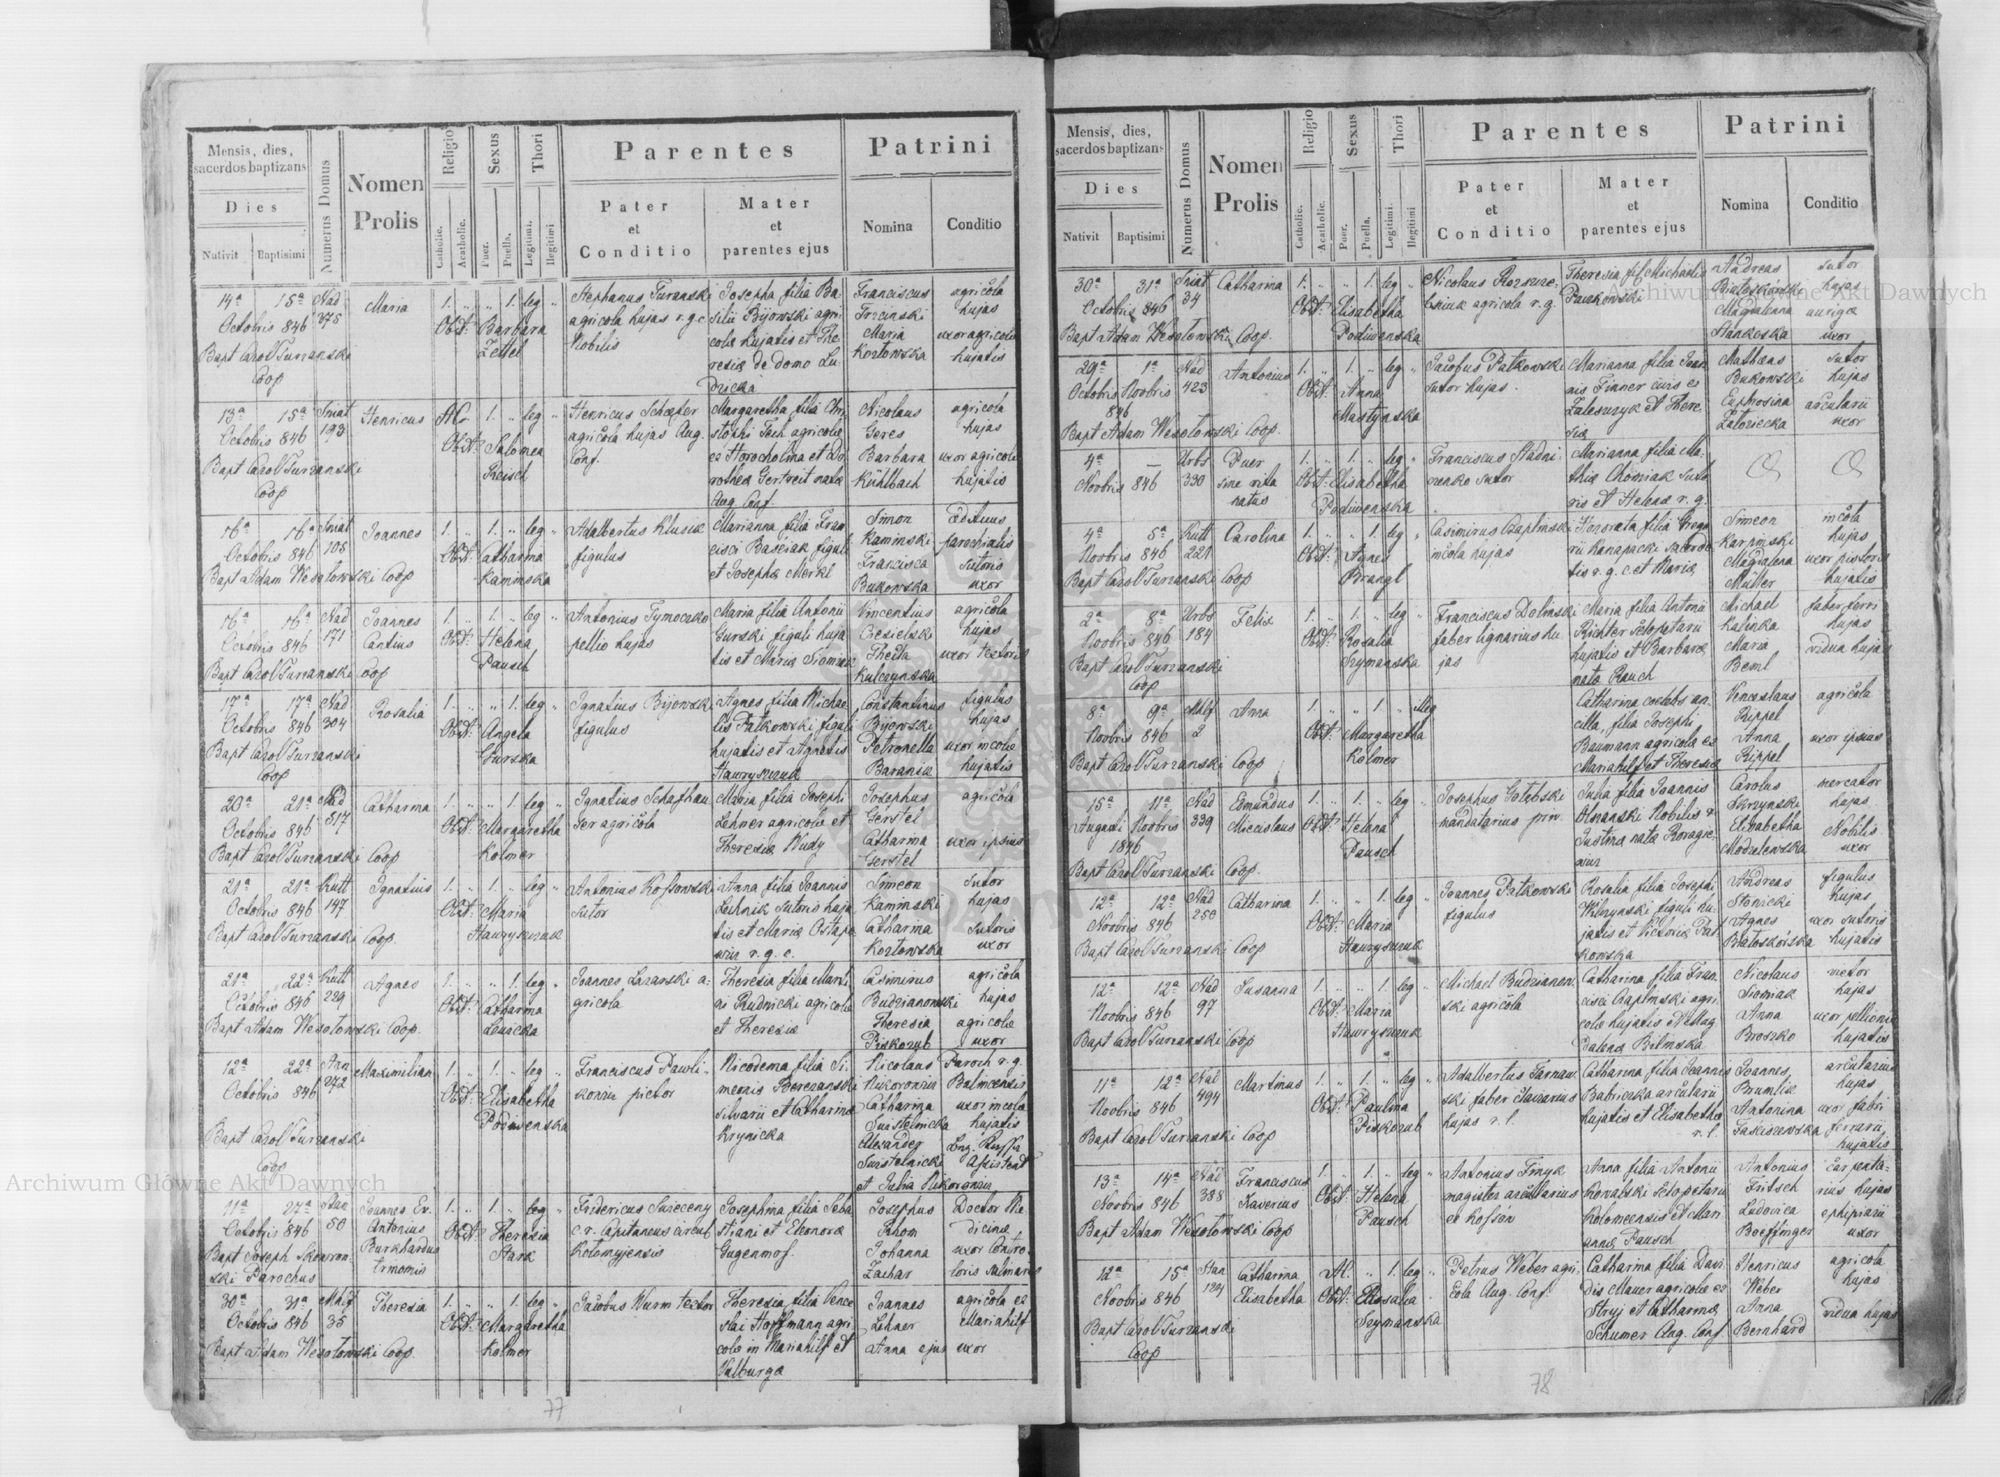 Mensis, dies, sacerdos baptizans
Numerus Domus
Nomen Prolis
Religio
Sexus
Thori
Parentes
Patrini
Dies
Nativit
Baptisimi
Catholic.
Acatholic.
Puer.
Puella.
Legitimi.
Ilegitimi
Pater et Conditio
Mater et parentes ejus
Nomina
Conditio
14a 15a Nad Maria 1. „ „ 1. leg „
Octobris 846 375 Obst: Barbara Zettel
Bapt Carol Turzanski Coop
Stephanus Turanski agricola hujas r.g.c Nobilis
Josepha filia Basilii Bijowski agricolæ hujatis et Theresiæ de domo Ludzicka
Franciscus Trzcinski agricola hujas
Maria Kozlowska uxor agricolæ hujatis
13a 15a Sniat Henricus AC. 1. „ leg „
Octobris 846 193 Obst: Salomea Reisch
Bapt Carol Turzanski Coop
Henricus Schæfer agricola hujas Aug. Conf.
Margaretha filia Christophi Jech agricolæ ex Horocholina et Dorothea Gertreit nata Aug Conf.
Nicolaus Geres agricola hujas
Barbara Kühlbach uxor agricolæ hujatis
16a 16a Sniat Joannes 1. „ 1. „ leg „
Octobris 846 105 Obst: Catharina Kaminska
Bapt Adam Wesołowski Coop
Adalbertus Klusik figulus
Marianna filia Francisci Basiak figuli et Josepha Merkl
Simon Kaminski Ædituus parochialis
Francisca Bukowska Sutoris uxor
16a 16a Nad Joannes Cantius 1. „ 1. „ leg „
Octobris 846 171 Obst: Helena Pausch
Bapt Carol Turzanski Coop
Antonius Tymoczko pellio hujas
Maria filia Antonii Gurski figuli hujatis et Maria Siomiak
Vincentius Ciesielski agricola hujas
Thecla Kulczynska uxor textoris
17a 17a Nad Rosalia 1. „ „ 1. leg „
Octobris 846 304 Obst: Angela Gurska
Bapt Carol Turzanski Coop
Ignatius Bijowski figulus
Agnes filia Michaelis Patkowski figuli hujatis et Agnetis Hawryszczuk
Constantinus Bijowski figulus hujas
Petronella Baraniuk uxor incolæ hujatis
20a 21a Nad Catharina 1. „ „ 1. leg „
Octobris 846 517 Obst: Margaretha Kolmer
Bapt Carol Turzanski Coop
Ignatius Schafhauser agricola
Maria filia Josephi Lehner agricolæ et Theresia Wudy
Josephus Gerstel agricola
Catharina Gerstel uxor ipsius
21a 21a Kutt Ignatius 1. „ 1. „ leg „
Octobris 846 147 Obst: Maria Hawryszczuk
Bapt Carol Turzanski Coop.
Antonius Kossowski sutor
Anna filia Joannis Lechnik sutoris hujatis et Mariæ Ostapowicz r.g.c.
Simeon Kaminski sutor hujas
Catharina Kozlowska sutoris uxor
21a 22a Kutt Agnes 1. „ „ 1. leg „
Octobris 846 229 Obst: Catharina Lewicka
Bapt Adam Wesołowski Coop.
Joannes Lazarski agricola
Theresia filia Martini Rudnicki agricolæ et Theresiæ
Casimirus Budzianowski agricola hujas
Theresia Piskozub agricolæ uxor
12a 22a Ann Maximilian 1. „ 1. „ leg „
Octobris 846 272 Obst: Elisabetha Podiwenska
Bapt Carol Turzanski Coop
Franciscus Pawlikowicz pictor
Nicodema filia Simeonis Berezanski silvarii et Catharinæ Krynicka
Nicolaus Nikorowicz Paroch r.g. Balincensis
Catharina Swistelnicka uxor incolæ hujatis
Alexander Swistelnicki et Julia Nikorowicz
11a 27a Stan Joannes Ev. Antonius Burkhardus 1. „ 1. „ leg „
Octobris 846 50 Obst: Theresia Stark
Bapt Joseph Skowronski Parochus
Fridericus Swieceny c.r. Capitaneus circuli Kolomyjensis
Josephina filia Sebastiani et Eleonora Gugenmos.
Josephus Rhom Doctor Medicinæ
Johanna Zachar uxor Controloris salinaris
30a 31a Mhlf Theresia 1. „ „ 1. leg „
Octobris 846 35 Obst: Margaretha Kolmer
Bapt Adam Wesołowski Coop.
Jacobus Wurm textor
Theresia filia Venceslai Hoffmann agricolæ in Mariahilf et Walburga
Joannes Lehner agricola ex Mariahilf
Anna ejus uxor
77
Mensis, dies, sacerdos baptizans
Numerus Domus
Nomen Prolis
Religio
Sexus
Thori
Parentes
Patrini
Dies
Nativit
Baptisimi
Catholic.
Acatholic.
Puer.
Puella.
Legitimi.
Ilegitimi
Pater et Conditio
Mater et parentes ejus
Nomina
Conditio
30a 31a Sniat Catharina 1. „ „ 1. leg „
Octobris 846 34 Obst: Elisabetha Podiwenska
Bapt Adam Wesołowski Coop.
Nicolaus agricola r.g.
Theresia fil Michaelis Pawkowski
Andreas Bialoskórski sutor hujas
Magdalena Stankeska aurigæ uxor
29a 1a Nad Antonius 1. „ 1. „ leg „
Octobris Novbris 846 423 Obst: Anna Mastynska
Bapt Adam Wesołowski Coop.
Jacobus Patkowski sutor hujas.
Marianna filia Joannis Finner civis ex Zaleszczyk et Theresia
Mathæus Bukowski sutor hujas
Euphrosina Zatoriecka arcularii uxor
4a — Urbs Puer sine vita natus 1. „ 1. „ leg „
Novbris 846 330 Obst: Elisabetha Podiwenska
Franciscus Stadniczenko sutor
Marianna filia Mathiæ Chomiak sutoris et Helenæ r.g.
4a 5a Kutt Carolina 1. „ „ 1. leg „
Novbris 846 221 Obst: Agnes Brangl
Bapt Carol Turzanski Coop
Casimirus Czaplinski incola hujas
Honorata filia Gregorii Kanapacki sacerdotis r.g.c et Mariæ
Simeon Karpinski incola hujas
Magdalena Müller uxor pistoris hujatis
2a 8a Urbs Felix 1. „ 1. „ leg „
Novbris 846 184 Obst: Rosalia Szymanska
Bapt Carol Turzanski Coop
Franciscus Dolinski faber lignarius hujas
Maria filia Antonii Richter sclopetarii hujatis et Barbara nata Rauch
Michael Kalinka faber ferri hujas
Maria Beml vidua hujas
8a 9a Mhlf Anna 1. „ „ 1. „ illeg
Novbris 846 2 Obst: Margaretha Kolmer
Bapt Carol Turzanski Coop
Catharina coelebs ancilla, filia Josephi Baumann agricolæ ex Mariahilf et Theresia
Venceslaus Rippel agricola
Anna Rippel uxor ipsius
15a 11a Nad Edmundus Miecislaus 1. „ 1. „ leg „
Augusti Novbris 1846 339 Obst: Helena Pausch
Bapt Carol Turzanski Coop.
Josephus Gołębski mandatarius priv.
Julia filia Joannis Olszanski Nobilis & Justina nata
Carolus Skrzynski mercator hujas
Elisabetha Modzelewska Nobilis uxor
12a 12a Nad Catharina 1. „ „ 1. leg „
Novbris 846 250 Obst: Maria Hawryszczuk
Bapt Carol Turzanski Coop
Joannes Patkowski figulus
Rosalia filia Josephi Wilczynski figuli hujatis et Victoriæ Patkowska
Andreas Slonicki figulus hujas
Agnes Bialoskórska uxor sutoris hujatis
12a 12a Nad Susanna 1. „ „ 1. leg „
Novbris 846 97 Obst: Maria Hawryszczuk
Bapt Carol Turzanski Coop
Michael Budzianowski agricola
Catharina filia Francisci Czaplinski agricolæ hujatis et Magdalena Bilinska
Nicolaus Siomiak vietor hujas
Anna Broszko uxor pellionis hujatis
11a 12a Nad Martinus 1. „ 1. „ leg „
Novbris 846 494 Obst: Paulina Piskozub
Bapt Carol Turzanski Coop
Adalbertus Tarnawski faber clavarius hujas r.l.
Catharina filia Joannis Babiczka arcularii hujatis et Elisabethæ r.l.
Joannes Brumlik arcularius hujas
Antonina Jaskiszewska uxor fabri ferrarii hujatis
13a 14a Nad Franciscus Xaverius 1. „ 1. „ leg „
Novbris 846 388 Obst: Helena Pausch
Bapt Adam Wesołowski Coop
Antonius Tmyk magister arcularius ex Kossów
Anna filia Antonii Kowalski Sclopetarii Kolomeensis et Marianna Pausch
Antonius Fritsch carpentarius hujas
Ludovica Boeffinger ephipiarii uxor
12a 15a Stan Catharina Elisabetha AC. „ 1. leg „
Novbris 846 124 Obst: Rosalia Szymanska
Bapt Carol Turzanski Coop
Petrus Weber agricola Aug. Conf.
Catharina filia Davidis Mauer agricolæ ex Stryj et Catharinæ Schumer Aug. Conf.
Henricus Weber agricola hujas
Anna Bernhard vidua hujas
78
Archiwum Główne Akt Dawnych
Archiwum Główne Akt Dawnych